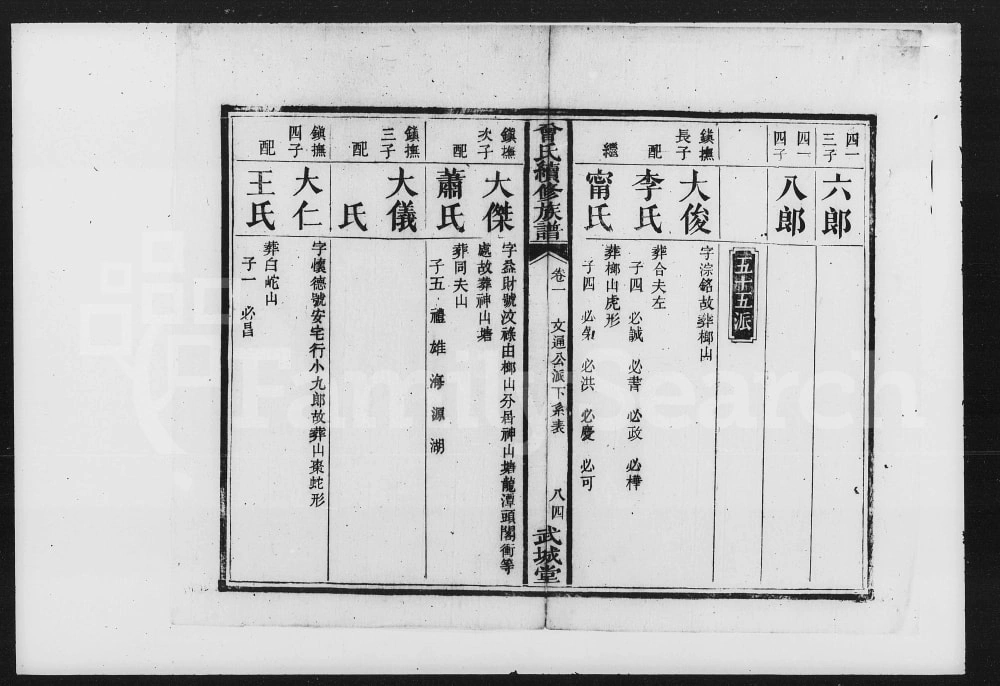 四一 三子 六郎
四一 四子 八郎
五十五派
鎮撫 長子 大俊 字淙銘故葬梛山
配 李氏 葬合夫左
子四 必誠 必書 必政 必樺
繼 甯氏 葬梛山虎形
子四 必第 必洪 必慶 必可
曾氏續修族譜 卷一 文通公派下系表 八四 武城堂
鎮撫 次子 大傑 字益財號汶祿由梛山分居神山塘龍潭頭閣衝等
處故葬神山塘
配 蕭氏 葬同夫山
子五 禮 雄 海 源 湖
鎮撫 三子 大儀
配 氏
鎮撫 四子 大仁 字懷德號安宅行小九郎故葬山棗蛇形
配 王氏 葬白岮山
子一 必昌
FamilySearch